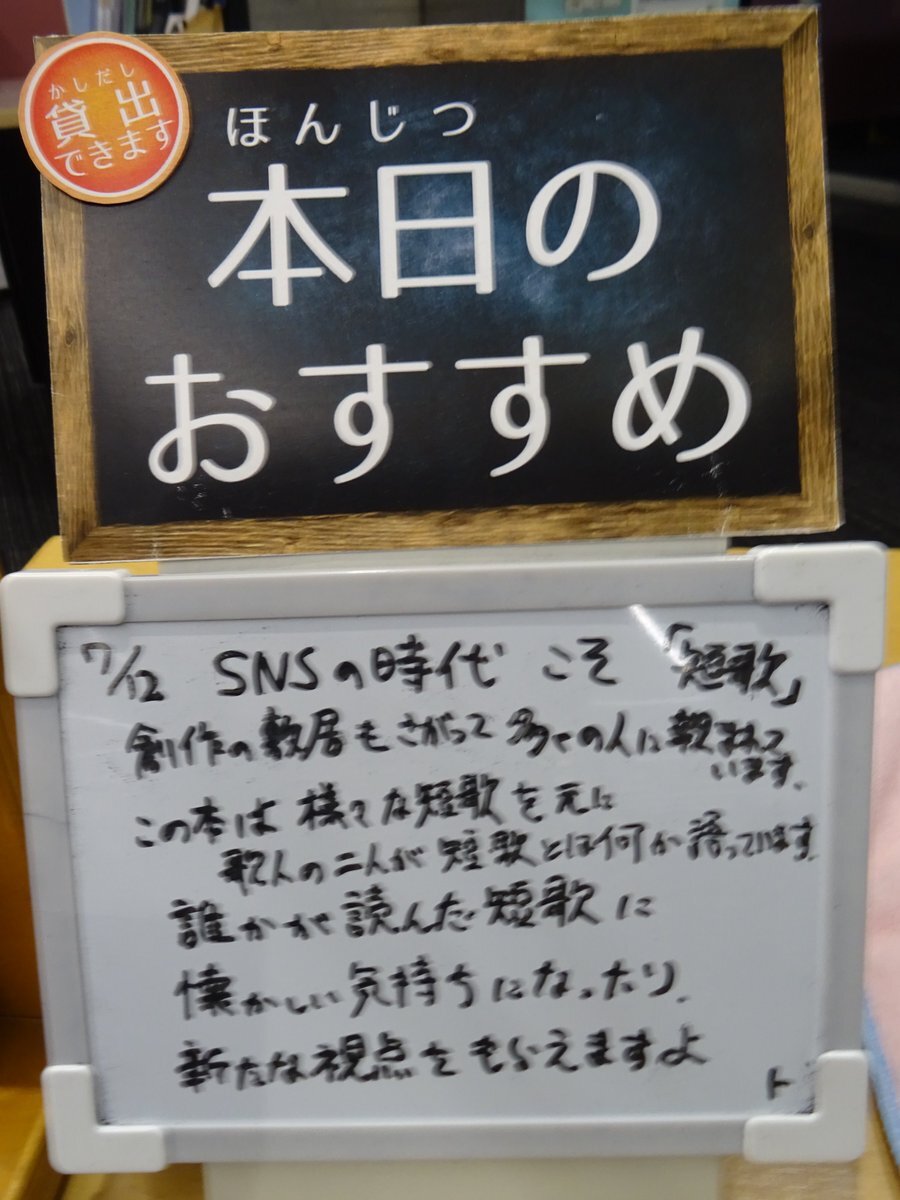 かしだし
貸出
できます
ほんじつ
本日の
おすすめ
7/12 SNSの時代 こそ「短歌」
創作の敷居もさがって多くの人に親しまれて
います。
この本は 様々な短歌を元に
歌人の二人が 短歌とは何か語っています。
誰かが読んだ短歌に
懐かしい気持ちになったり、
新たな視点をもらえますよ
ト